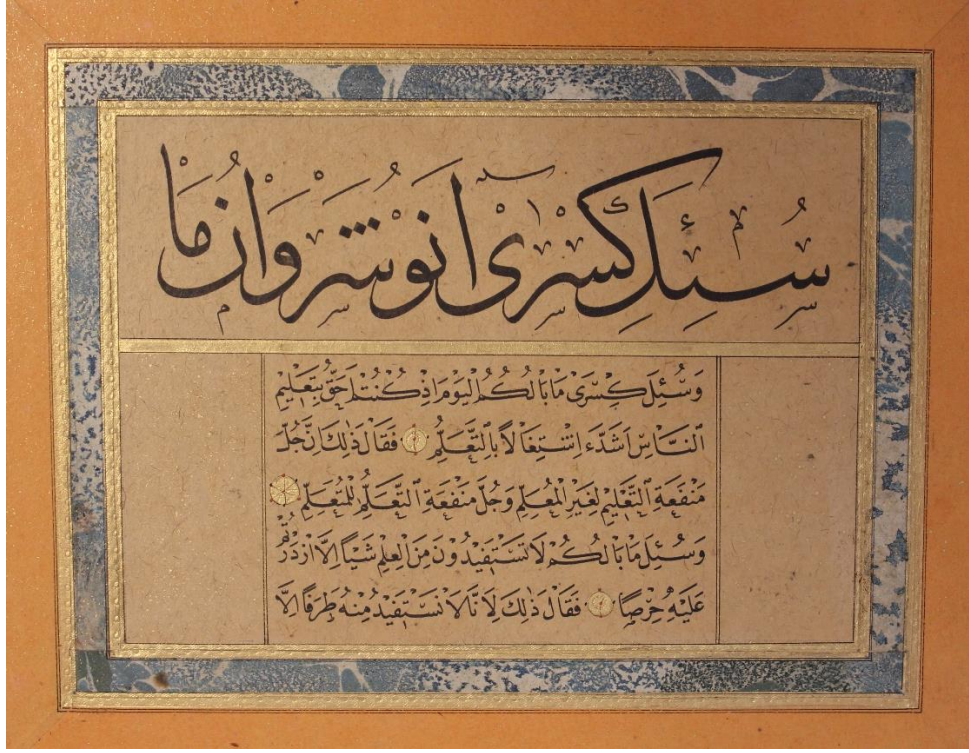 سُئِلَ كِسْرٰى اَنُوشَرْوَانْ مَا
وَسُئِلَ كِسْرٰى مَا بَالُكُمُ الْيَوْمَ اِذْ كُنْتُمْ اَحَقَّ بِتَعْلِيمِ
النَّاسِ اَشَدَّ اشْتِغَالًا بِالتَّعَلُّمِ فَقَالَ ذٰلِكَ اِنَّ جُلَّ
مَنْفَعَةِ التَّعْلِيمِ لِغَيْرِ الْمُعَلِّمِ وَجُلَّ مَنْفَعَةِ التَّعَلُّمِ لِلْمُتَعَلِّمِ
وَسُئِلَ مَا بَالُكُمْ لَا تَسْتَفِيدُونَ مِنَ الْعِلْمِ شَيْأً اِلَّا ازْدَدْتُمْ
عَلَيْهِ حِرْصًا فَقَالَ ذٰلِكَ لِاَنَّا لَا نَسْتَفِيدُ مِنْهُ طَرَفًا اِلَّا